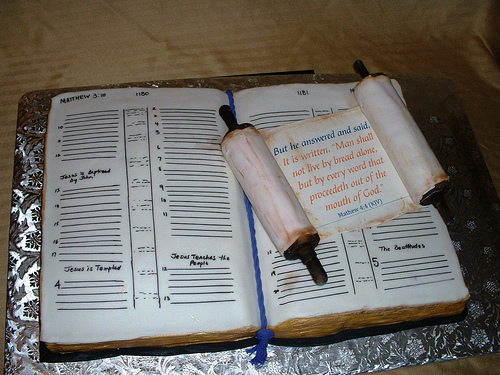 MATTHEW 3:10
1180
1181
10
12
Jesus is Baptized
by John
13
14
15
16
17
Jesus is Tempted
4
4
5
6
7
8
9
10
11
Jesus Teaches the
People
12
13
But he answered and said,
It is written, "Man shall
not live by bread alone,
but by every word that
proceedeth out of the
mouth of God."
Matthew 4:4 (KJV)
The Beatitudes
5